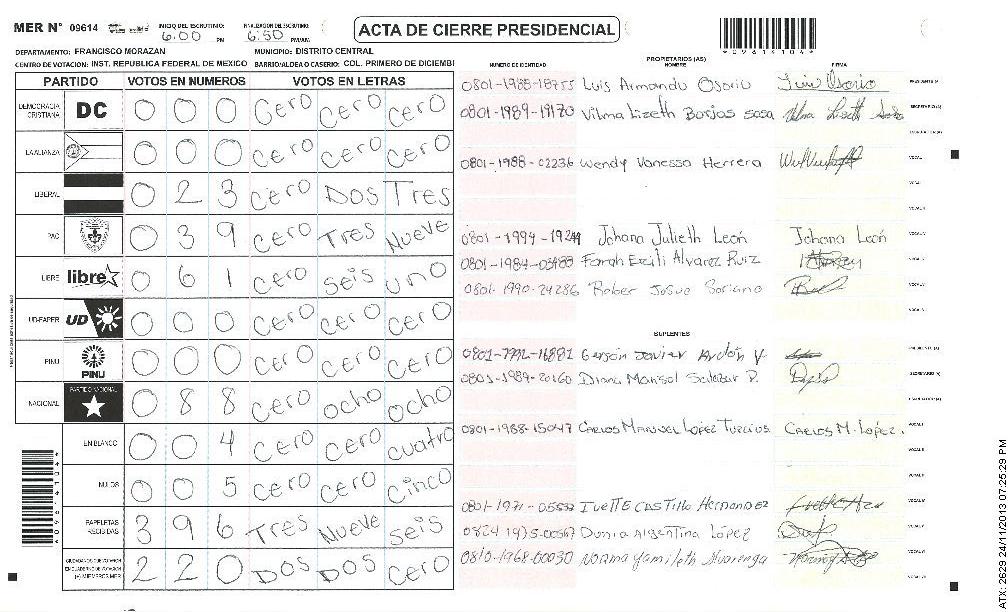 MER Nº 09614 INICIO DEL ESCRUTINIO: 6:00 PM FINALIZACION DEL ESCRUTINIO: 6:50 PM/AM.
ACTA DE CIERRE PRESIDENCIAL
DEPARTAMENTO: FRANCISCO MORAZAN MUNICIPIO: DISTRITO CENTRAL
CENTRO DE VOTACION: INST. REPUBLICA FEDERAL DE MEXICO BARRIO/ALDEA O CASERIO: COL. PRIMERO DE DICIEMBRE
PARTIDO VOTOS EN NUMEROS VOTOS EN LETRAS
DEMOCRACIA CRISTIANA DC 0 0 0 Cero Cero Cero
LA ALIANZA 0 0 0 Cero Cero Cero
LIBERAL 0 2 3 Cero Dos Tres
PAC 0 3 9 Cero Tres Nueve
LIBRE libre 0 6 1 Cero Seis uno
UD-FAPER UD 0 0 0 Cero Cero Cero
PINU PINU 0 0 0 Cero Cero Cero
NACIONAL PARTIDO NACIONAL 0 8 8 Cero ocho ocho
EN BLANCO 0 0 4 Cero Cero cuatro
NULOS 0 0 5 Cero Cero Cinco
PAPELETAS RECIBIDAS 3 9 6 Tres Nueve seis
CIUDADANOS QUE VOTARON EN CUADERNO DE VOTACION (+) MIEMBROS MER 2 2 0 Dos Dos Cero
PROPIETARIOS (AS)
NUMERO DE IDENTIDAD NOMBRE FIRMA
0801-1988-18755 Luis Armando Osorio Luis Osorio PRESIDENTE (A)
0801-1989-19170 Vilma Lizeth Borjas Sosa Vilma Lizeth SECRETARIO (A)
0801-1988-02236 Wendy Vanessa Herrera VOCAL
0801-1994-19244 Johana Julieth León Johana León
0801-1984- Farah Alvarez Ruiz
0801-1990-24286 Rober Josue Soriano
SUPLENTES
Gerson Javier Ardón Y. PRESIDENTE (A)
0801-1989-20160 Diana Marisol P. SECRETARIO (A)
0801-1988-15047 Carlos Manuel Lopez Turcios Carlos M. López.
0801-1971- Ivette Castillo Hernandez
Dunia Argentina López
0810-1968-00030 Norma Yamileth Alvarenga
ATX: 2629 24/11/2013 07:25:29 PM